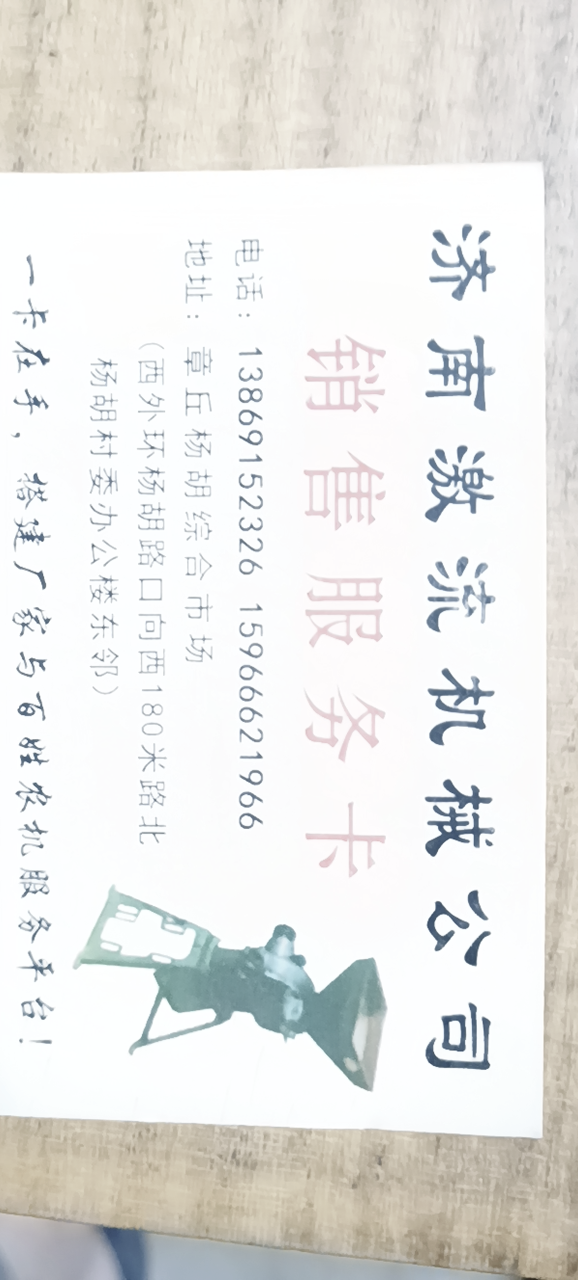 济南激流机械公司
销售服务卡
电话：13869152326 15966621966
地址：章丘杨胡综合市场
（西外环杨胡路口向西180米路北
杨胡村委办公楼东邻）
一卡在手，搭建厂家与百姓农机服务平台！